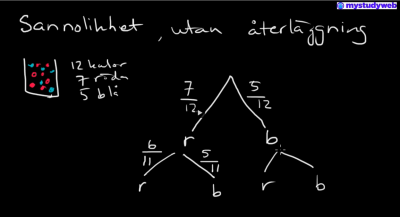 mystudyweb
Sannolikhet, utan återläggning
12 kulor
7 röda
5 blå
7/12 5/12
r b
6/11 5/11
r b r b